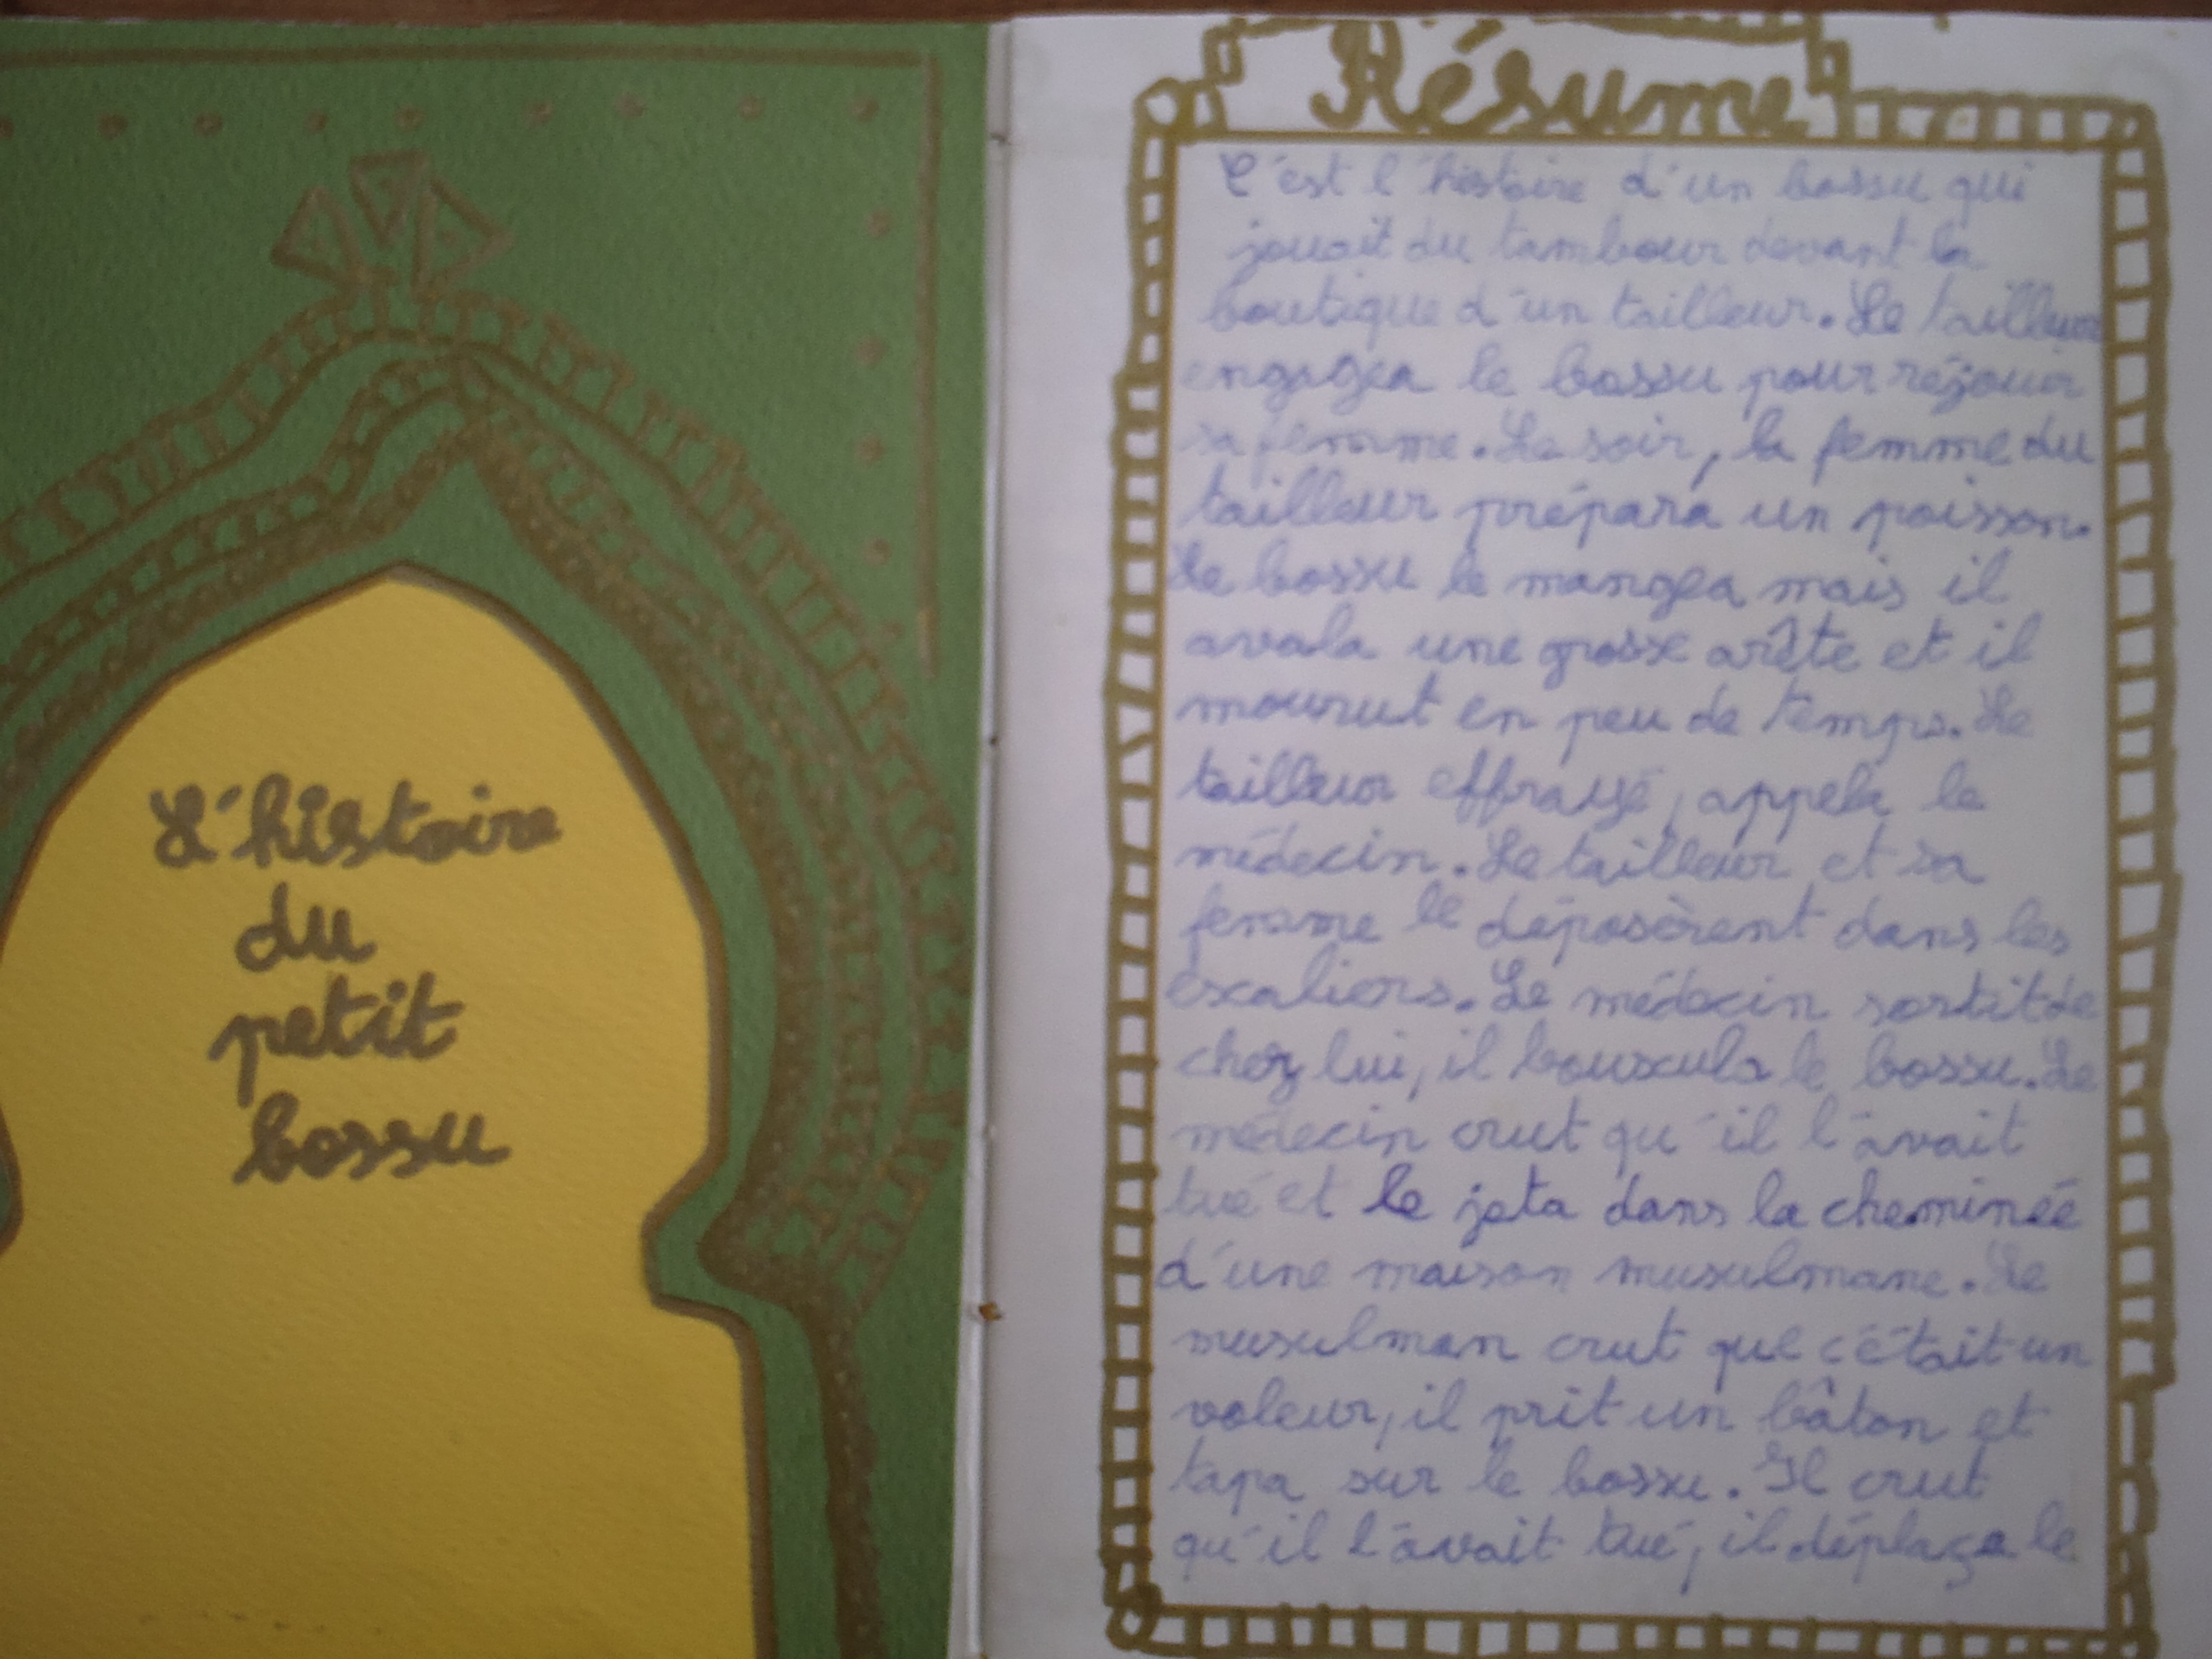 L'histoire
du
petit
bossu
Résumé
C'est l'histoire d'un bossu qui
jouait du tambour devant la
boutique d'un tailleur. Le tailleur
engagea le bossu pour réjouir
sa femme. Le soir, la femme du
tailleur prépara un poisson.
Le bossu le mangea mais il
avala une grosse arête et il
mourut en peu de temps. Le
tailleur effrayé, appela le
médecin. Le tailleur et sa
femme le déposèrent dans les
escaliers. Le médecin sortit de
chez lui, il bouscula le bossu. Le
médecin crut qu'il l'avait
tué et le jeta dans la cheminéé
d'une maison musulmane. Le
musulman crut que c'était un
voleur, il prit un bâton et
tapa sur le bossu. Il crut
qu'il l'avait tué, il déplaça le